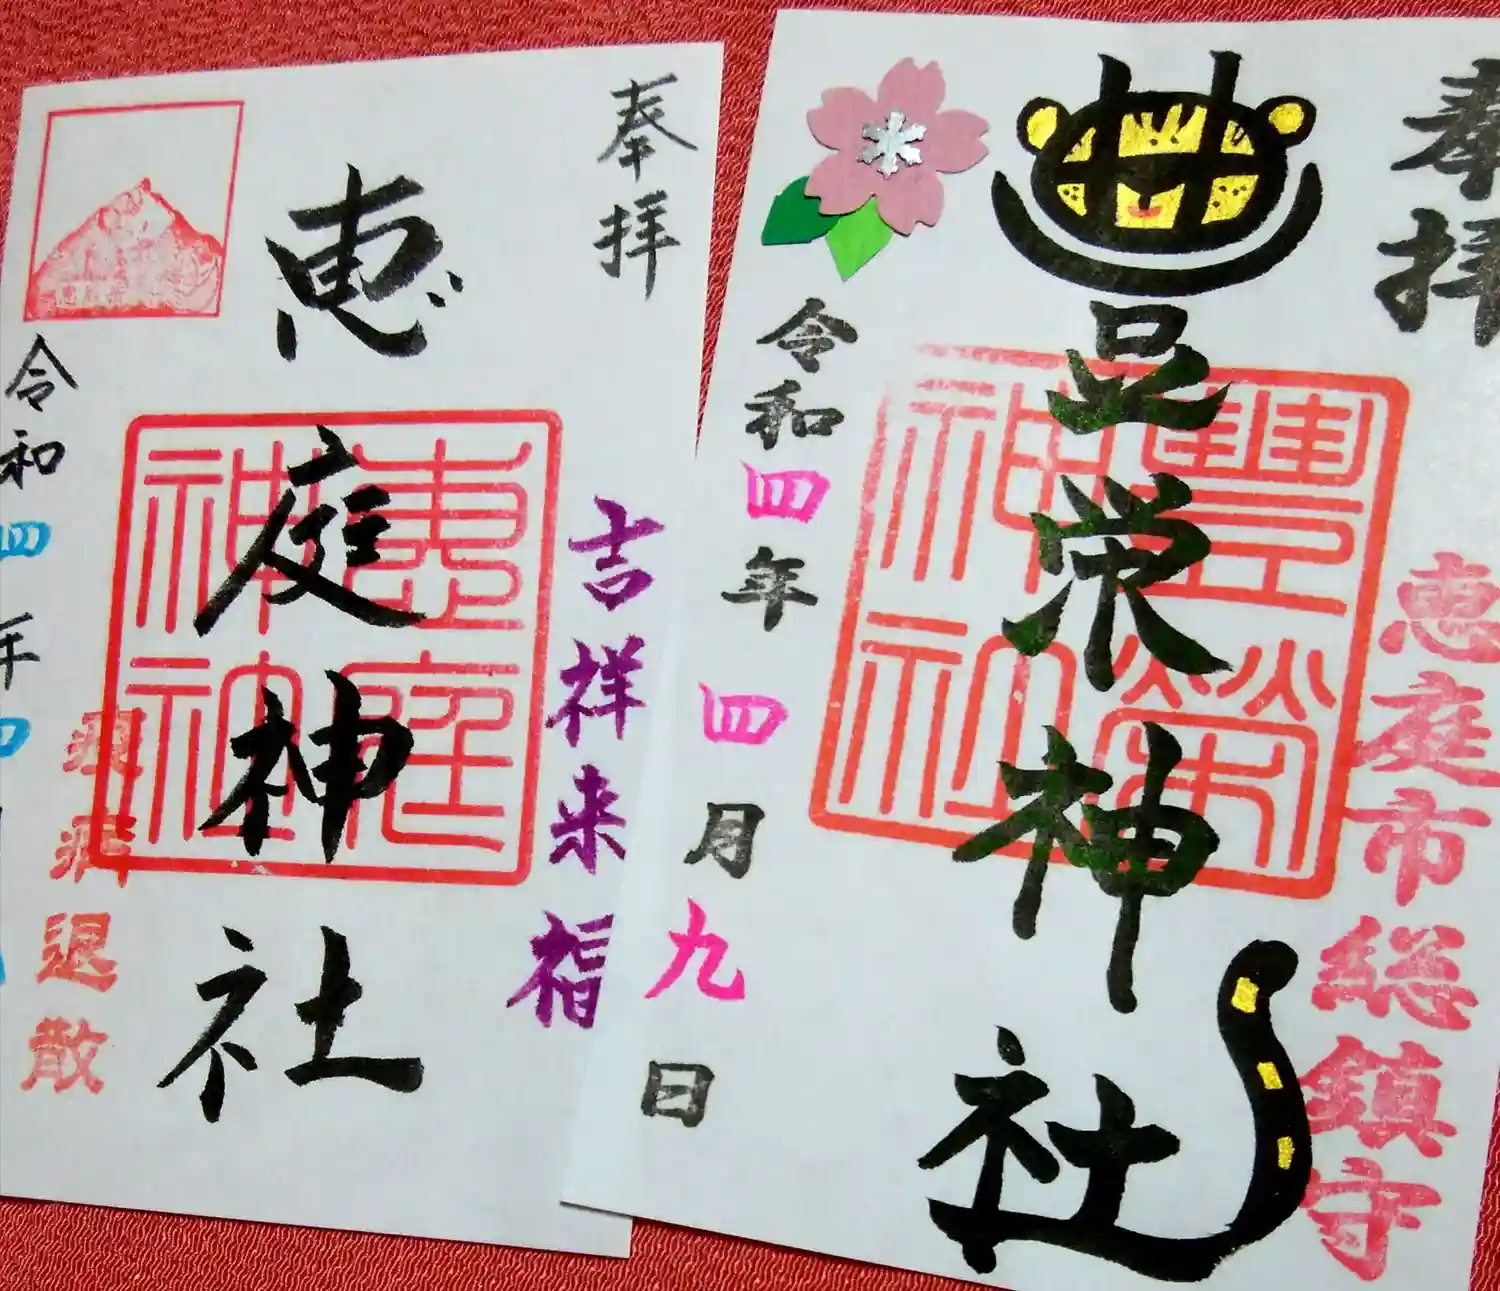 奉拝
吉祥来福
恵庭神社
恵庭神社
疫病退散
令和四年四
奉拝
恵庭市総鎮守
豊栄神社
豐榮神社
令和四年四月九日